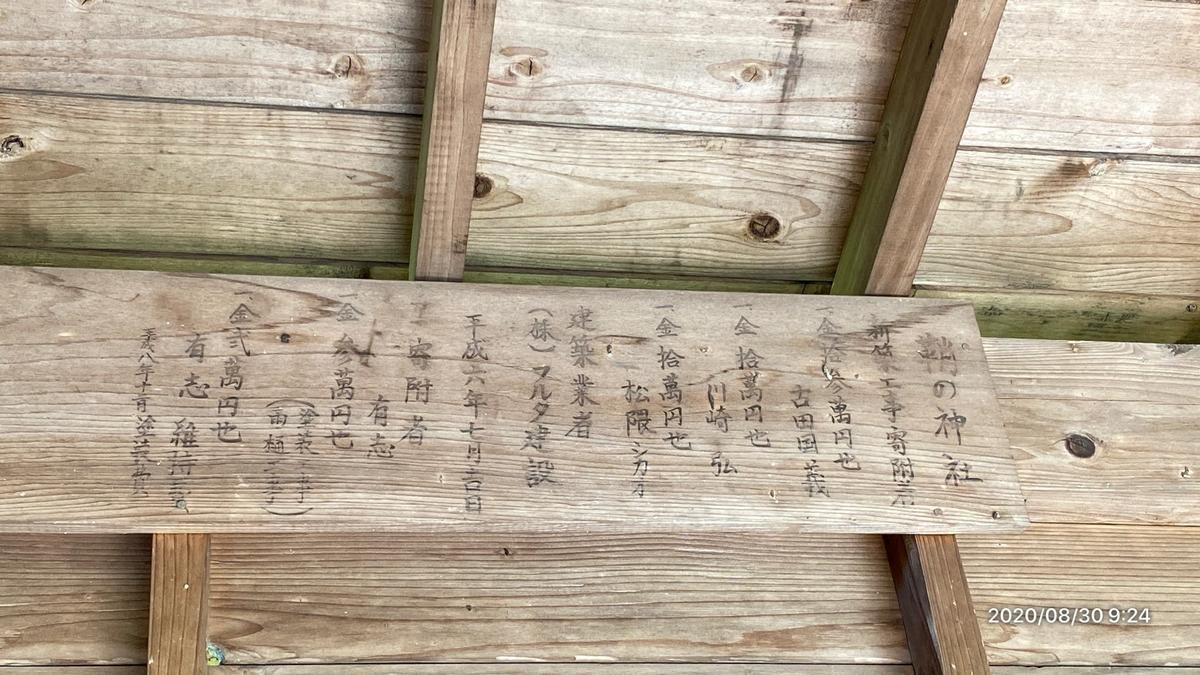 鞘の神社
新築工事寄附者
一金 拾参萬円也
古田国義
一金 拾萬円也
川崎 弘
一金 拾萬円也
松隈シカオ
建築業者
(株)フルタ建設
平成六年七月吉日
寄附者
有志
一金 参萬円也
(塗装工事)
(雨樋工事)
一金 弐萬円也
有志
平成八年十月
2020/08/30 9:24